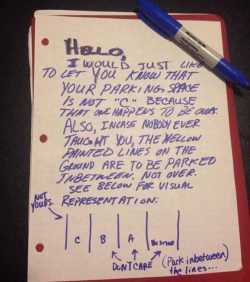 HELLO,
I WOULD JUST LIKE
TO LET YOU KNOW THAT
YOUR PARKING SPACE
IS NOT "C" BECAUSE
THAT ONE HAPPENS TO BE OURS.
ALSO, INCASE NOBODY EVER
TAUGHT YOU, THE YELLOW
PAINTED LINES ON THE
GROUND ARE TO BE PARKED
INBETWEEN. NOT OVER.
SEE BELOW FOR VISUAL
REPRESENTATION:
NOT
YOURS.
C B A
DON'T CARE
(Park inbetween)
the lines...